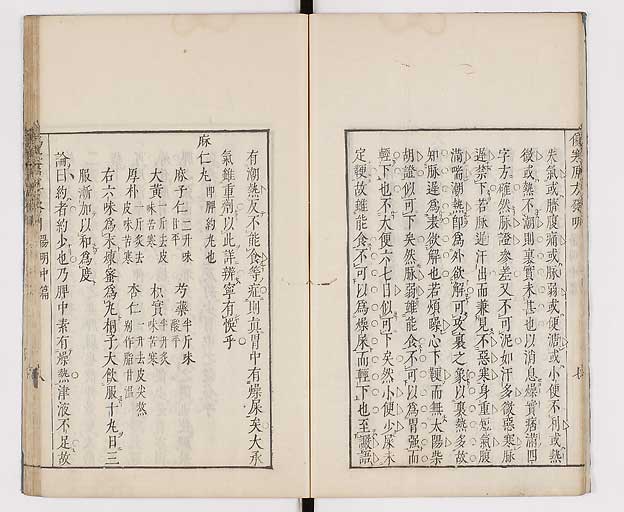 傷寒原方發明
失氣或臍腹痛或脉弱或便溏或小便不利或熱
微或熱不潮則裏實未甚也以消息燥實痞滿四
字方確然脉證參差又不可泥如汗多微惡寒脉
遲禁下若脉遲汗出而兼見不惡寒身重短氣腹
滿喘潮熱卽為外欲解可攻裏之象以裏熱多故
知脉遲為表欲解也若煩躁心下鞕而無太陽柴
胡證似可下矣然脉弱雖能食不可以為胃強而
輕下也不大便六七日似可下矣然小便少屎未
定鞕故雖能食不可以為燥屎而輕下也至讝語
有潮熱反不能食等症則真胃中有燥屎矣大承
氣雖重劑以此詳辨寧有悞乎
麻仁丸 卽脾約丸也
麻子仁 二升味甘平 芍藥 半斤味酸平
大黃 一斤去皮味苦寒 枳實 半斤炙味苦寒
厚朴 一斤炙去皮味苦寒 杏仁 一升去皮尖熬別作脂甘溫
右六味為末煉蜜為丸桐子大飲服十丸日三
服漸加以和為度
論曰約者約少也乃脾中素有燥熱津液不足故
陽明中篇
八